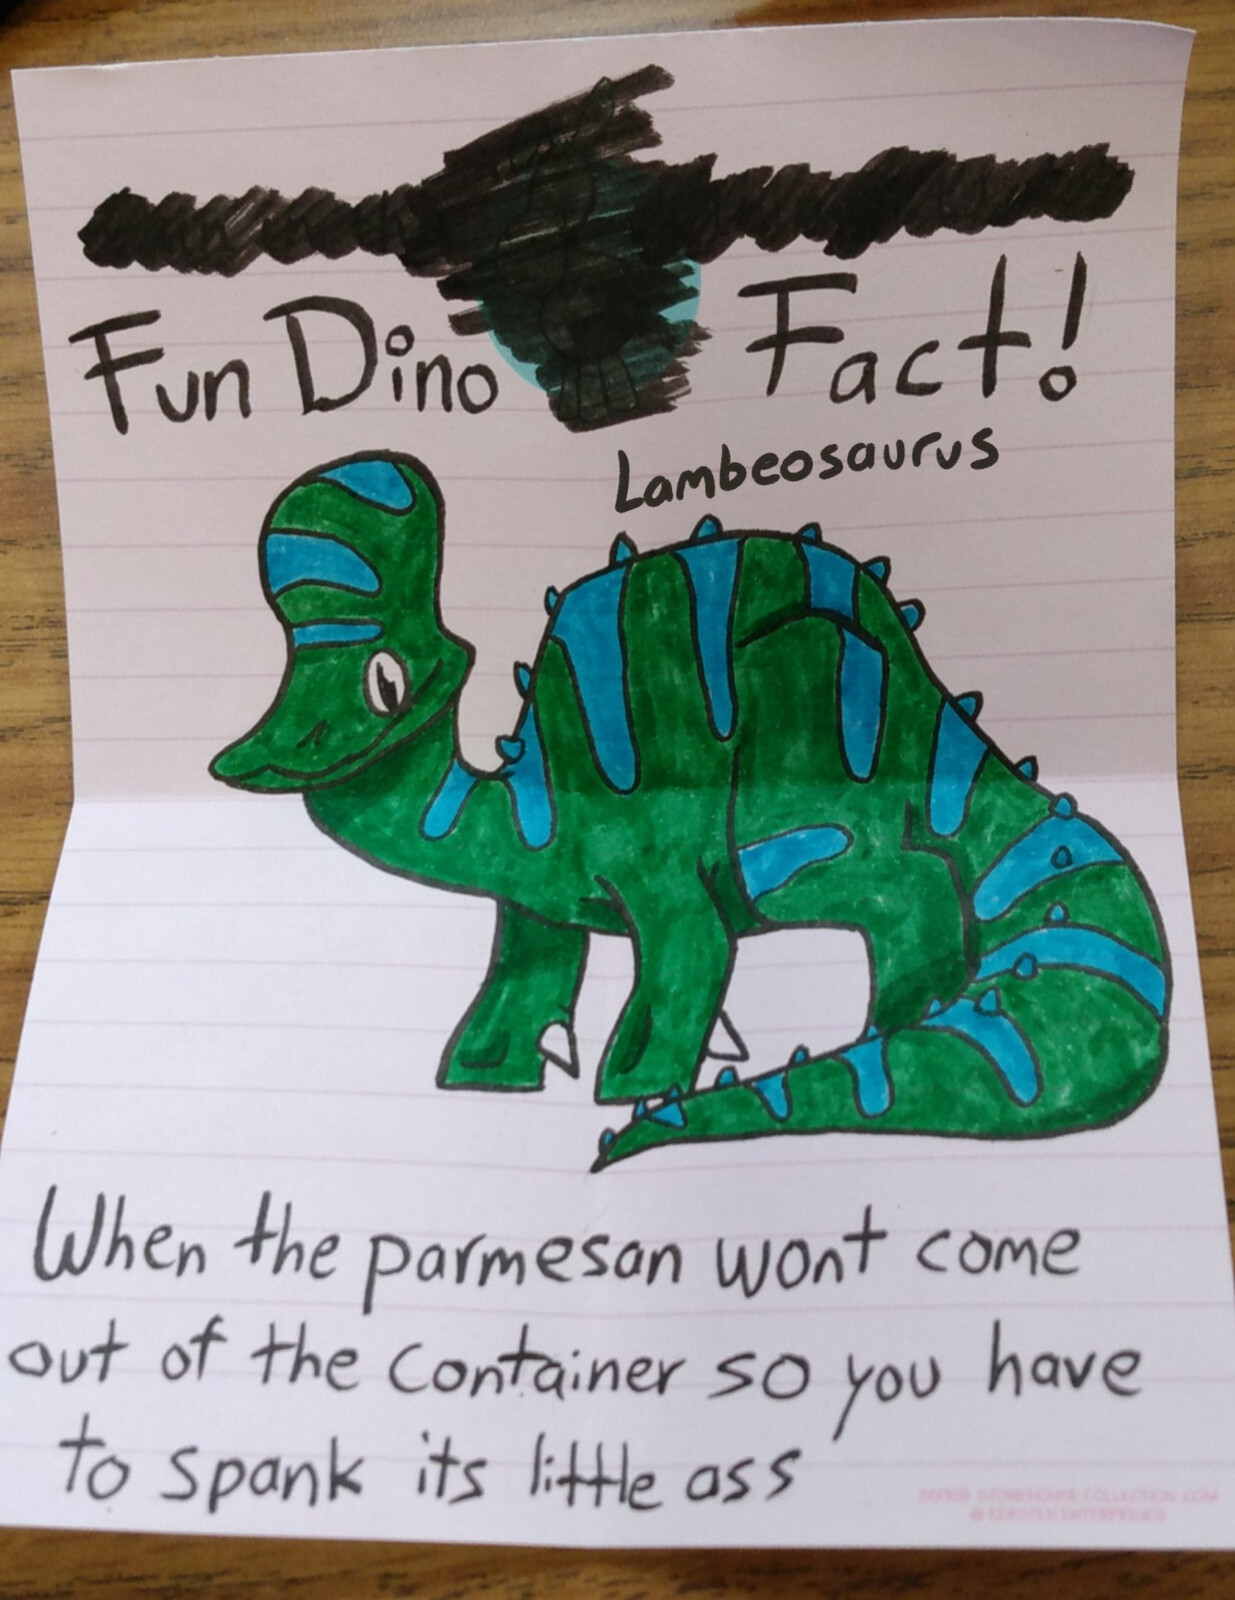 Fun Dino Fact!
Lambeosaurus
When the parmesan wont come
out of the container so you have
to spank its little ass
COLLECTION.COM